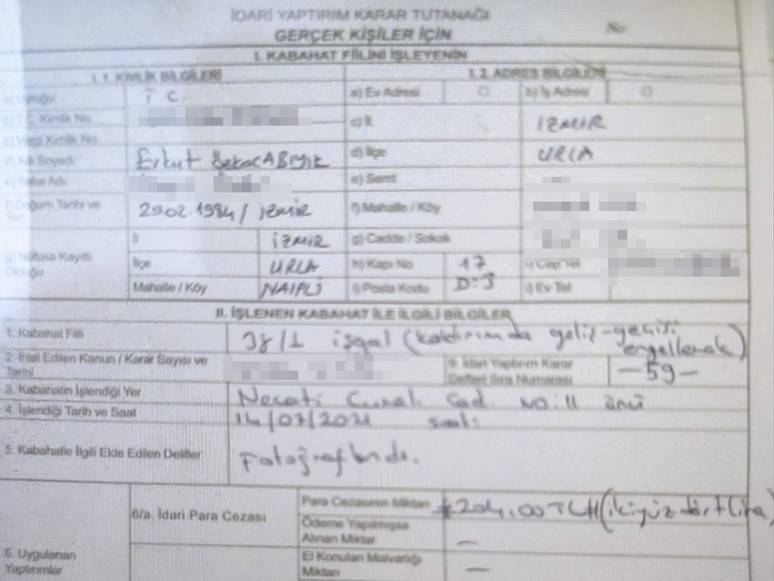 İDARİ YAPTIRIM KARAR TUTANAĞI
GERÇEK KİŞİLER İÇİN
No:
I. KABAHAT FİİLİNİ İŞLEYENİN
I. 1. KİMLİK BİLGİLERİ
I. 2. ADRES BİLGİLERİ
a) Uyruğu
T C.
a) Ev Adresi
b) İş Adresi
b) T.C. Kimlik No
c) İl
İZMİR
c) Vergi Kimlik No
d) Adı Soyadı
Erkut
d) İlçe
URLA
e) Baba Adı
e) Semt
f) Doğum Tarihi ve
29.02.1984 / İZMİR
f) Mahalle / Köy
İl
İZMİR
g) Cadde / Sokak
g) Nüfusa Kayıtlı Olduğu
İlçe
URLA
h) Kapı No
17
D:3
ı) Cep Tel
Mahalle / Köy
NAİPLİ
i) Posta Kodu
i) Ev Tel
II. İŞLENEN KABAHAT İLE İLGİLİ BİLGİLER
1. Kabahat Fiili
38/1 işgal (kaldırımda geliş-geçişi engellemek)
2. İhlal Edilen Kanun / Karar Sayısı ve Tarihi
9. İdari Yaptırım Karar Defteri Sıra Numarası
-59-
3. Kabahatin İşlendiği Yer
Necati Cad. No:11 önü
4. İşlendiği Tarih ve Saat
14/07/2021 saat:
5. Kabahatle İlgili Elde Edilen Deliller
Fotoğraflandı.
6. Uygulanan Yaptırımlar
6/a. İdari Para Cezası
Para Cezasının Miktarı
204,00 TL (ikiyüz dört lira)
Ödeme Yapılmışsa Alınan Miktar
-
El Konulan Malvarlığı Miktarı
-